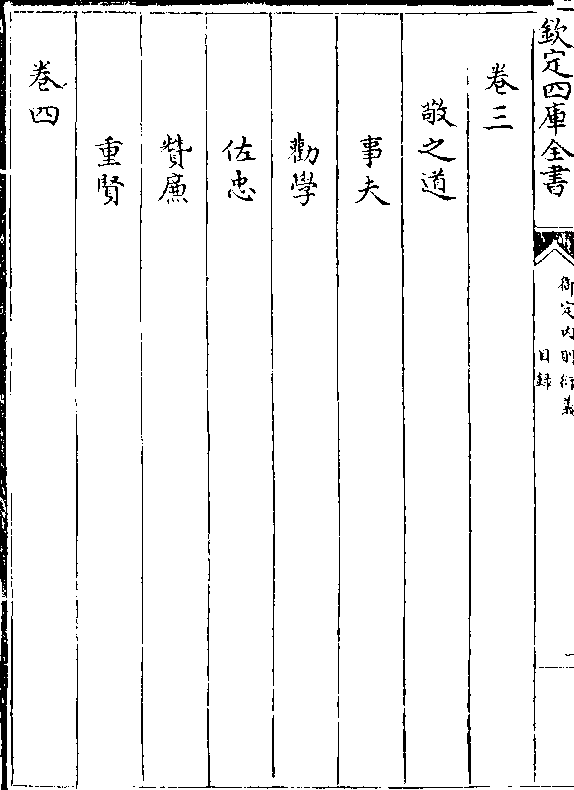 欽定四庫全書
御定內則衍義
目録
卷三
敬之道
事夫
勸學
佐忠
贊廉
重賢
卷四